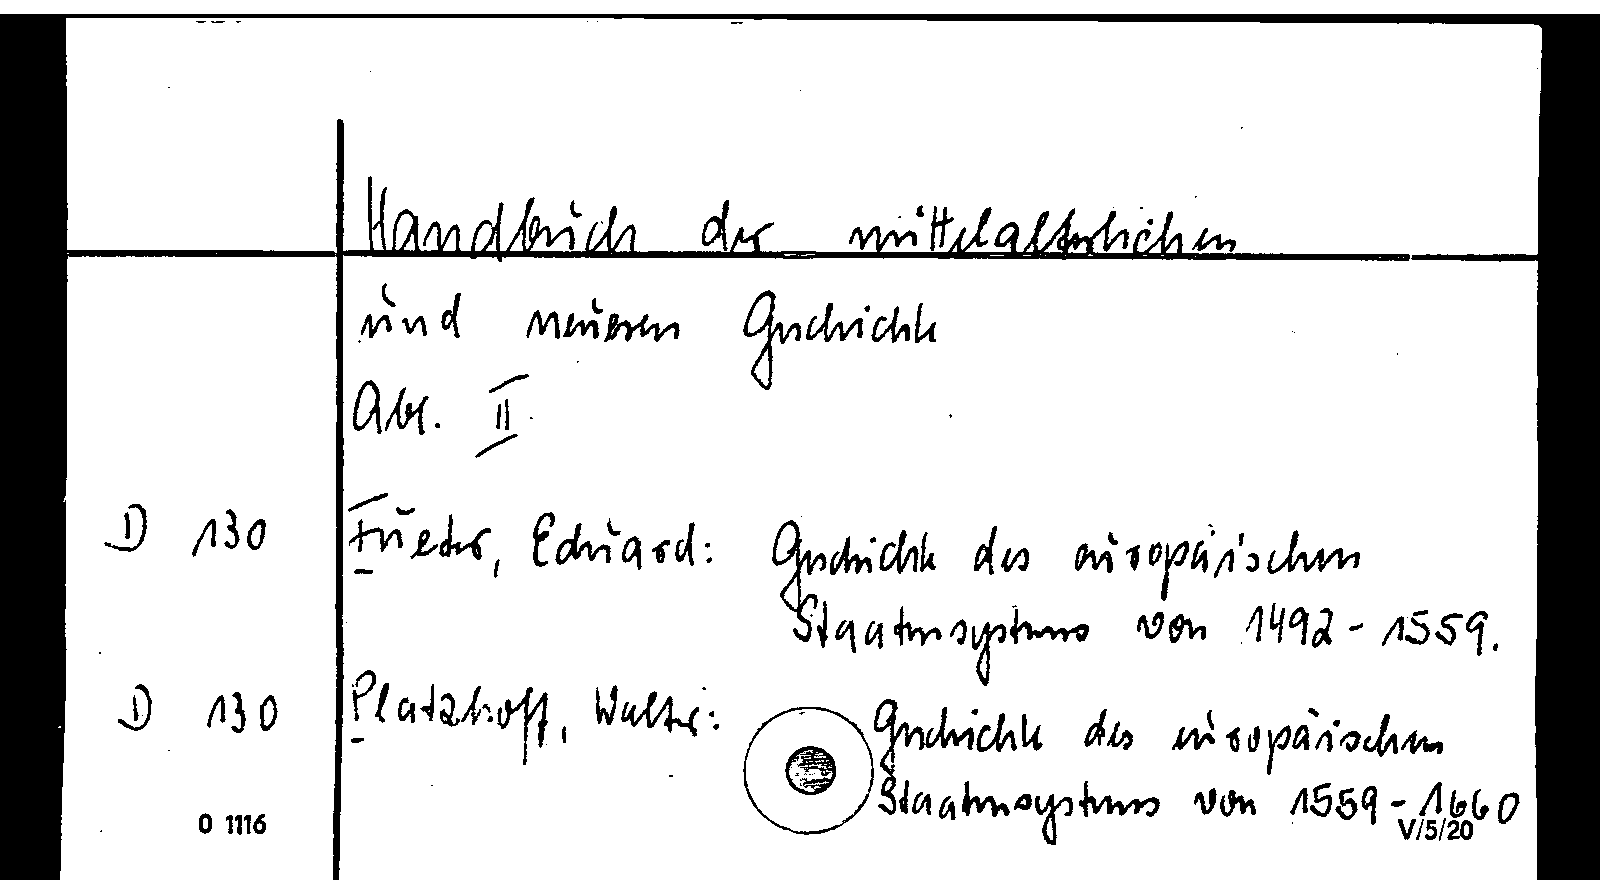 Handbuch der mittelalterlichen
und neueren Geschichte
Abt. II
D 130 Fueter, Eduard: Geschichte des europäischen
Staatensystems von 1492 - 1559.
D 130 Platzhoff, Walter: Geschichte des europäischen
Staatensystems von 1559 - 1660
O 1116 V/5/20